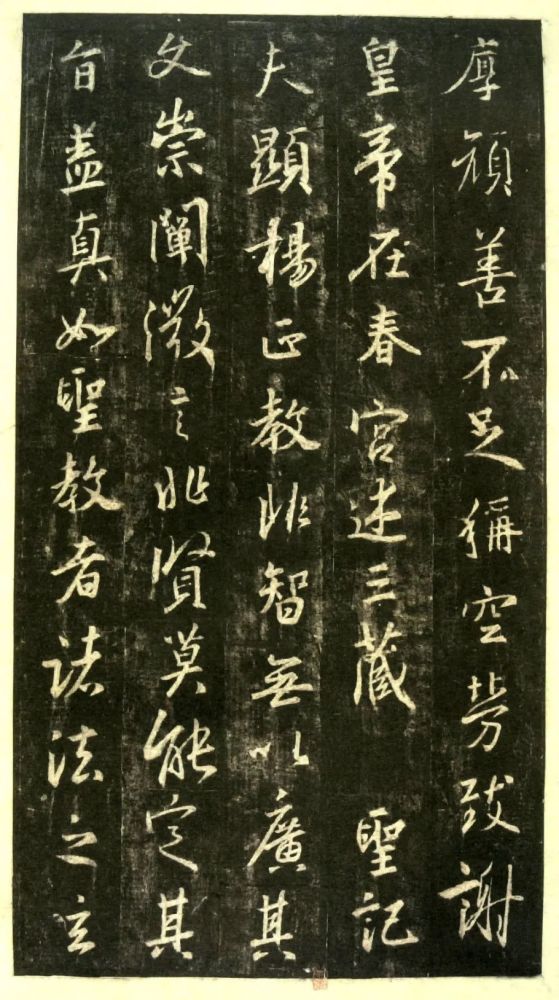 厚頑善不足稱空勞致謝
皇帝在春宮述三藏 聖記
夫顯揚正教非智無以廣其
文崇闡微言非賢莫能定其
旨蓋真如聖教者諸法之玄